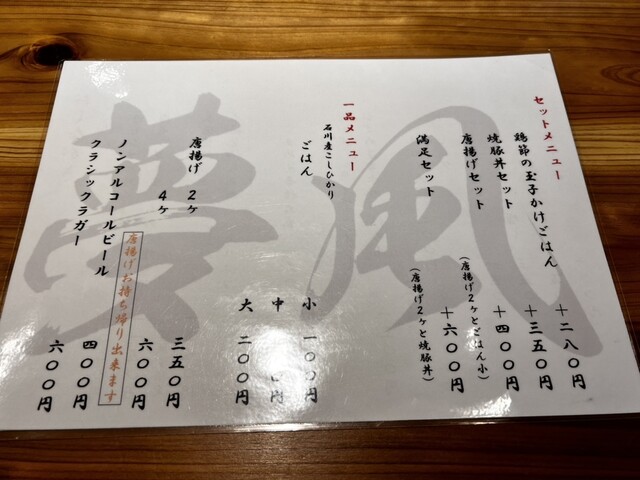 セットメニュー
鶏節の玉子かけごはん +二八〇円
焼豚丼セット +三五〇円
唐揚げセット +四〇〇円
(唐揚げ2ヶとごはん小)
満足セット +六〇〇円
(唐揚げ2ヶと焼豚丼)
一品メニュー
石川産こしひかり
ごはん 小 一〇〇円
中 円
大 二〇〇円
唐揚げ 2ヶ 三五〇円
4ヶ 六〇〇円
唐揚げお持ち帰り出来ます
ノンアルコールビール 四〇〇円
クラシックラガー 六〇〇円
夢風